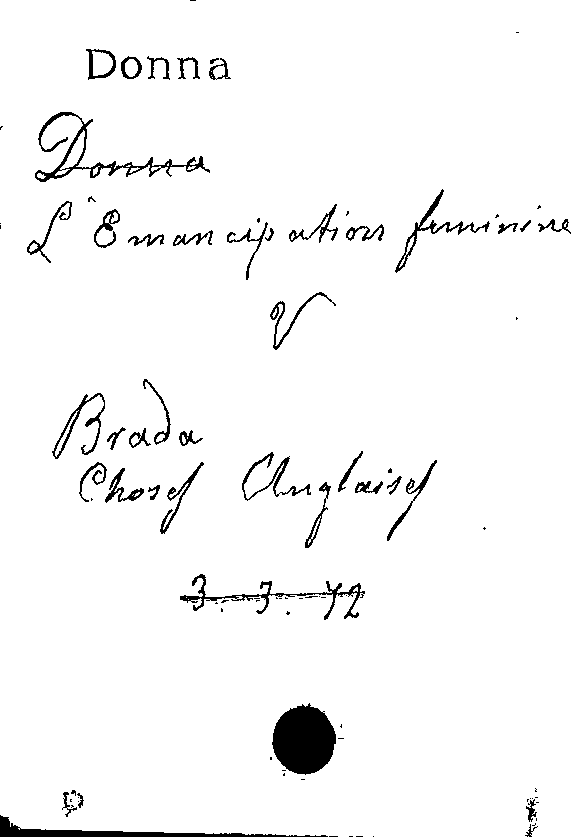 Donna
Donna
L'Emancipation feminine
V
Brada
Choses Anglaises
3. 3. 72
D